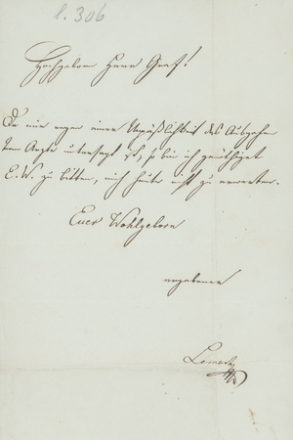 l. 306
Hochgeborner Herr Graf!
Da mir wegen einer Unpäßlichkeit das Ausgehen
vom Arzte untersagt ist, so bin ich genöthiget
E. W. zu bitten, mich heute nicht zu erwarten.
Euer Wohlgeborn
ergebener